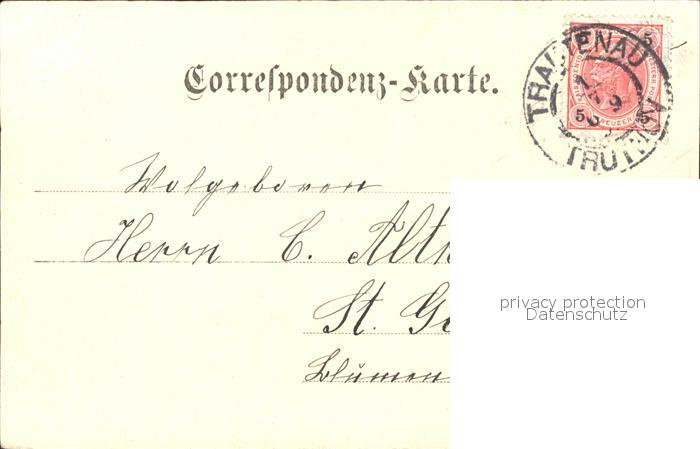 Correspondenz-Karte.
TRAUTENAU
TRUTNOV
5
5
KREUZER
Wolgeboren
Herrn C. Alt
St. G
Blumen
privacy protection
Datenschutz